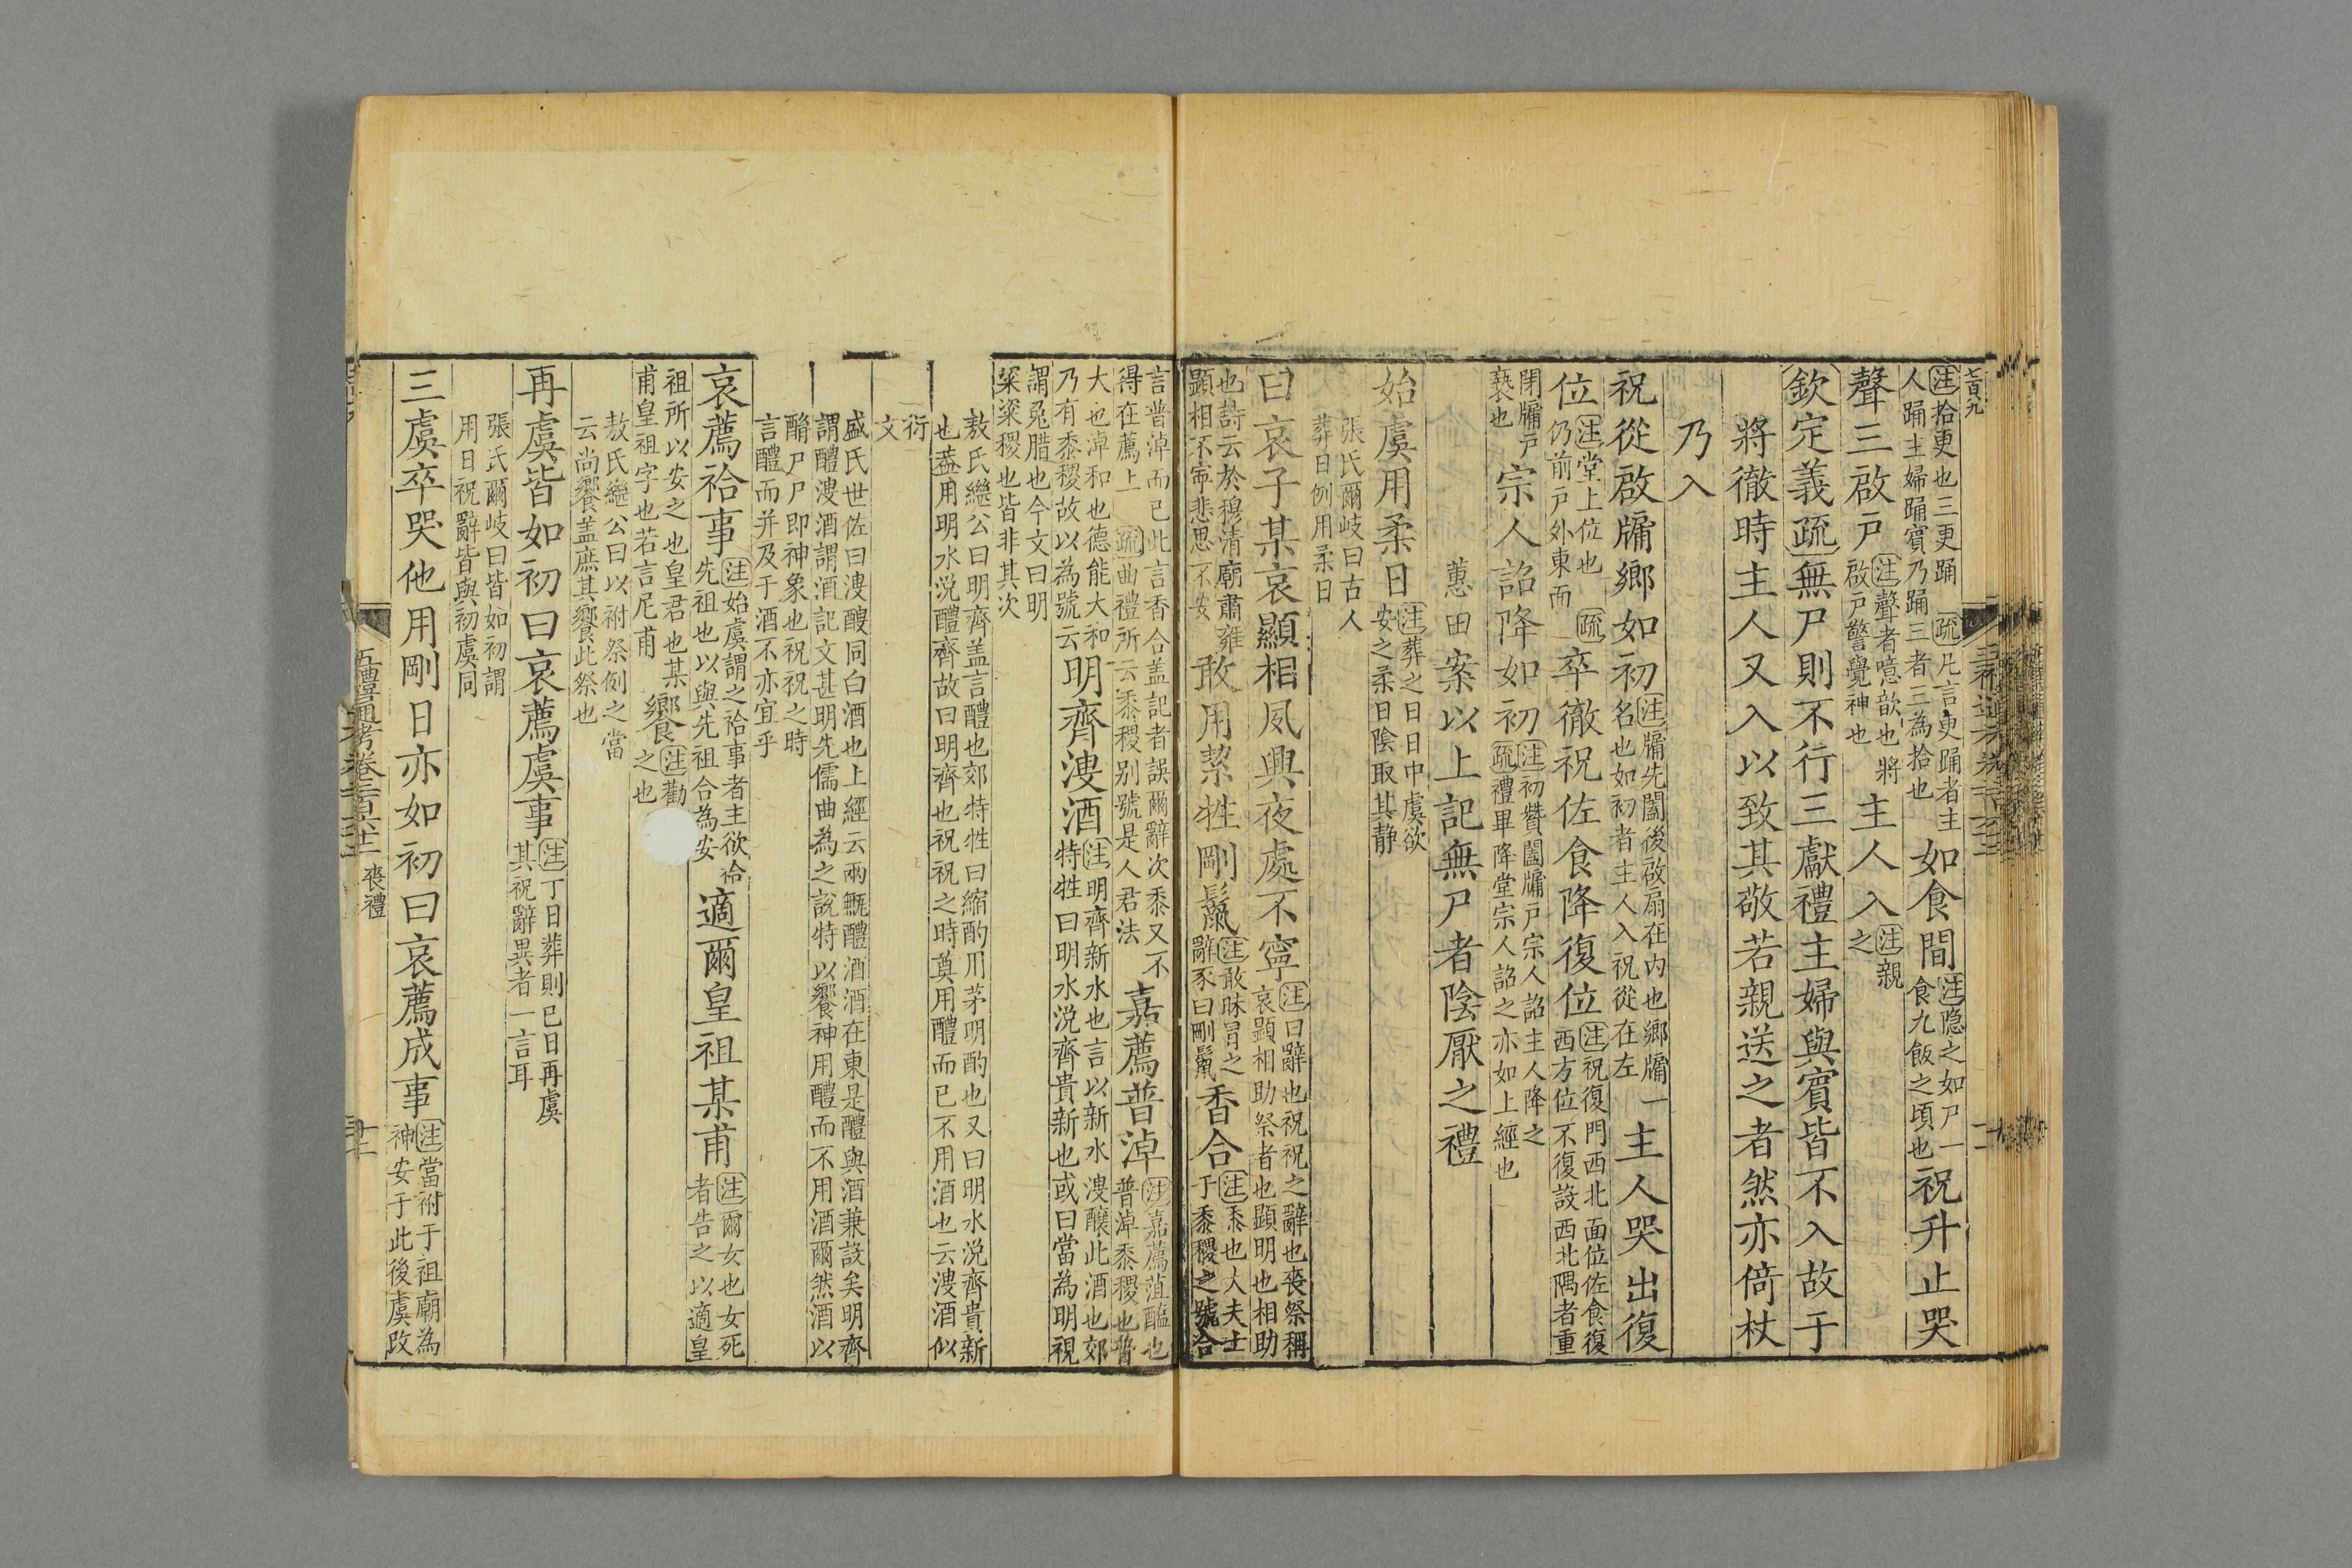 七百九
注拾更也三更踊 疏凡言更踊者主
人踊主婦踊賓乃踊三者三為拾也
如食間
注隐之如尸一
食九飯之頃也
祝升止哭
聲三啟戶
注聲者噫歆也將
啟戶警覺神也
主人入
注親
之
欽定義疏無尸則不行三獻禮主婦與賓皆不入故于
將徹時主人又入以致其敬若親送之者然亦倚杖
乃入
祝從啟牖鄉如初
注牖先闔後啟扇在内也鄉牖一
名也如初者主人入祝從在左
主人哭出復
位
注堂上位也
仍前戶外東面
疏
卒徹祝佐食降復位
注祝復門西北面位佐食復
西方位不復設西北隅者重
閉牖戶
褻也
宗人詔降如初
注初贊闔牖戶宗人詔主人降之
疏禮畢降堂宗人詔之亦如上經也
蕙田案以上記無尸者陰厭之禮
始虞用柔日
注葬之日日中虞欲
安之柔日陰取其静
張氏爾岐曰古人
葬日例用柔日
曰哀子某哀顯相夙興夜處不寧
注曰辭也祝祝之辭也喪祭稱
哀顯相助祭者也顯明也相助
也詩云於穆清廟肅雍
顯相不寧悲思不安
敢用絜牲剛鬣
注敢昧冒之
辭豕曰剛鬣
香合
注黍也大夫士
于黍稷之號合
言普淖而已此言香合盖記者誤爾辭次黍又不
得在薦上 疏曲禮所云黍稷别號是人君法
嘉薦普淖
注嘉薦菹醢也
普淖黍稷也普
大也淖和也德能大和
乃有黍稷故以為號云
明齊溲酒
注明齊新水也言以新水溲釀此酒也郊
特牲曰明水涚齊貴新也或曰當為明視
謂兎腊也今文曰明
粢粢稷也皆非其次
敖氏繼公曰明齊盖言醴也郊特牲曰縮酌用茅明酌也又曰明水涚齊貴新
也葢用明水涚醴齊故曰明齊也祝祝之時奠用醴而已不用酒也云溲酒似
衍
文
盛氏世佐曰溲醙同白酒也上經云兩甒醴酒酒在東是醴與酒兼設矣明齊
謂醴溲酒謂酒記文甚明先儒曲為之說特以饗神用醴而不用酒爾然酒以
酳尸尸即神象也祝祝之時
言醴而并及于酒不亦宜乎
哀薦祫事
注始虞謂之祫事者主欲祫
先祖也以與先祖合為安
適爾皇祖某甫
注爾女也女死
者告之以適皇
祖所以安之也皇君也某
甫皇祖字也若言尼甫
饗
注勸
之也
敖氏繼公曰以祔祭例之當
云尚饗盖庶其饗此祭也
再虞皆如初曰哀薦虞事
注丁日葬則己日再虞
其祝辭異者一言耳
張氏爾岐曰皆如初謂
用日祝辭皆與初虞同
三虞卒哭他用剛日亦如初曰哀薦成事
注當祔于祖廟為
神安于此後虞改
五禮通考卷二百六十二
喪禮